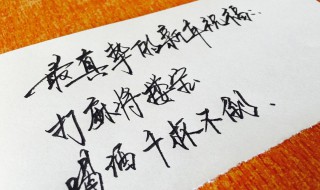 最真挚的新年祝福.
打麻将搂宝
喝酒千杯不倒.